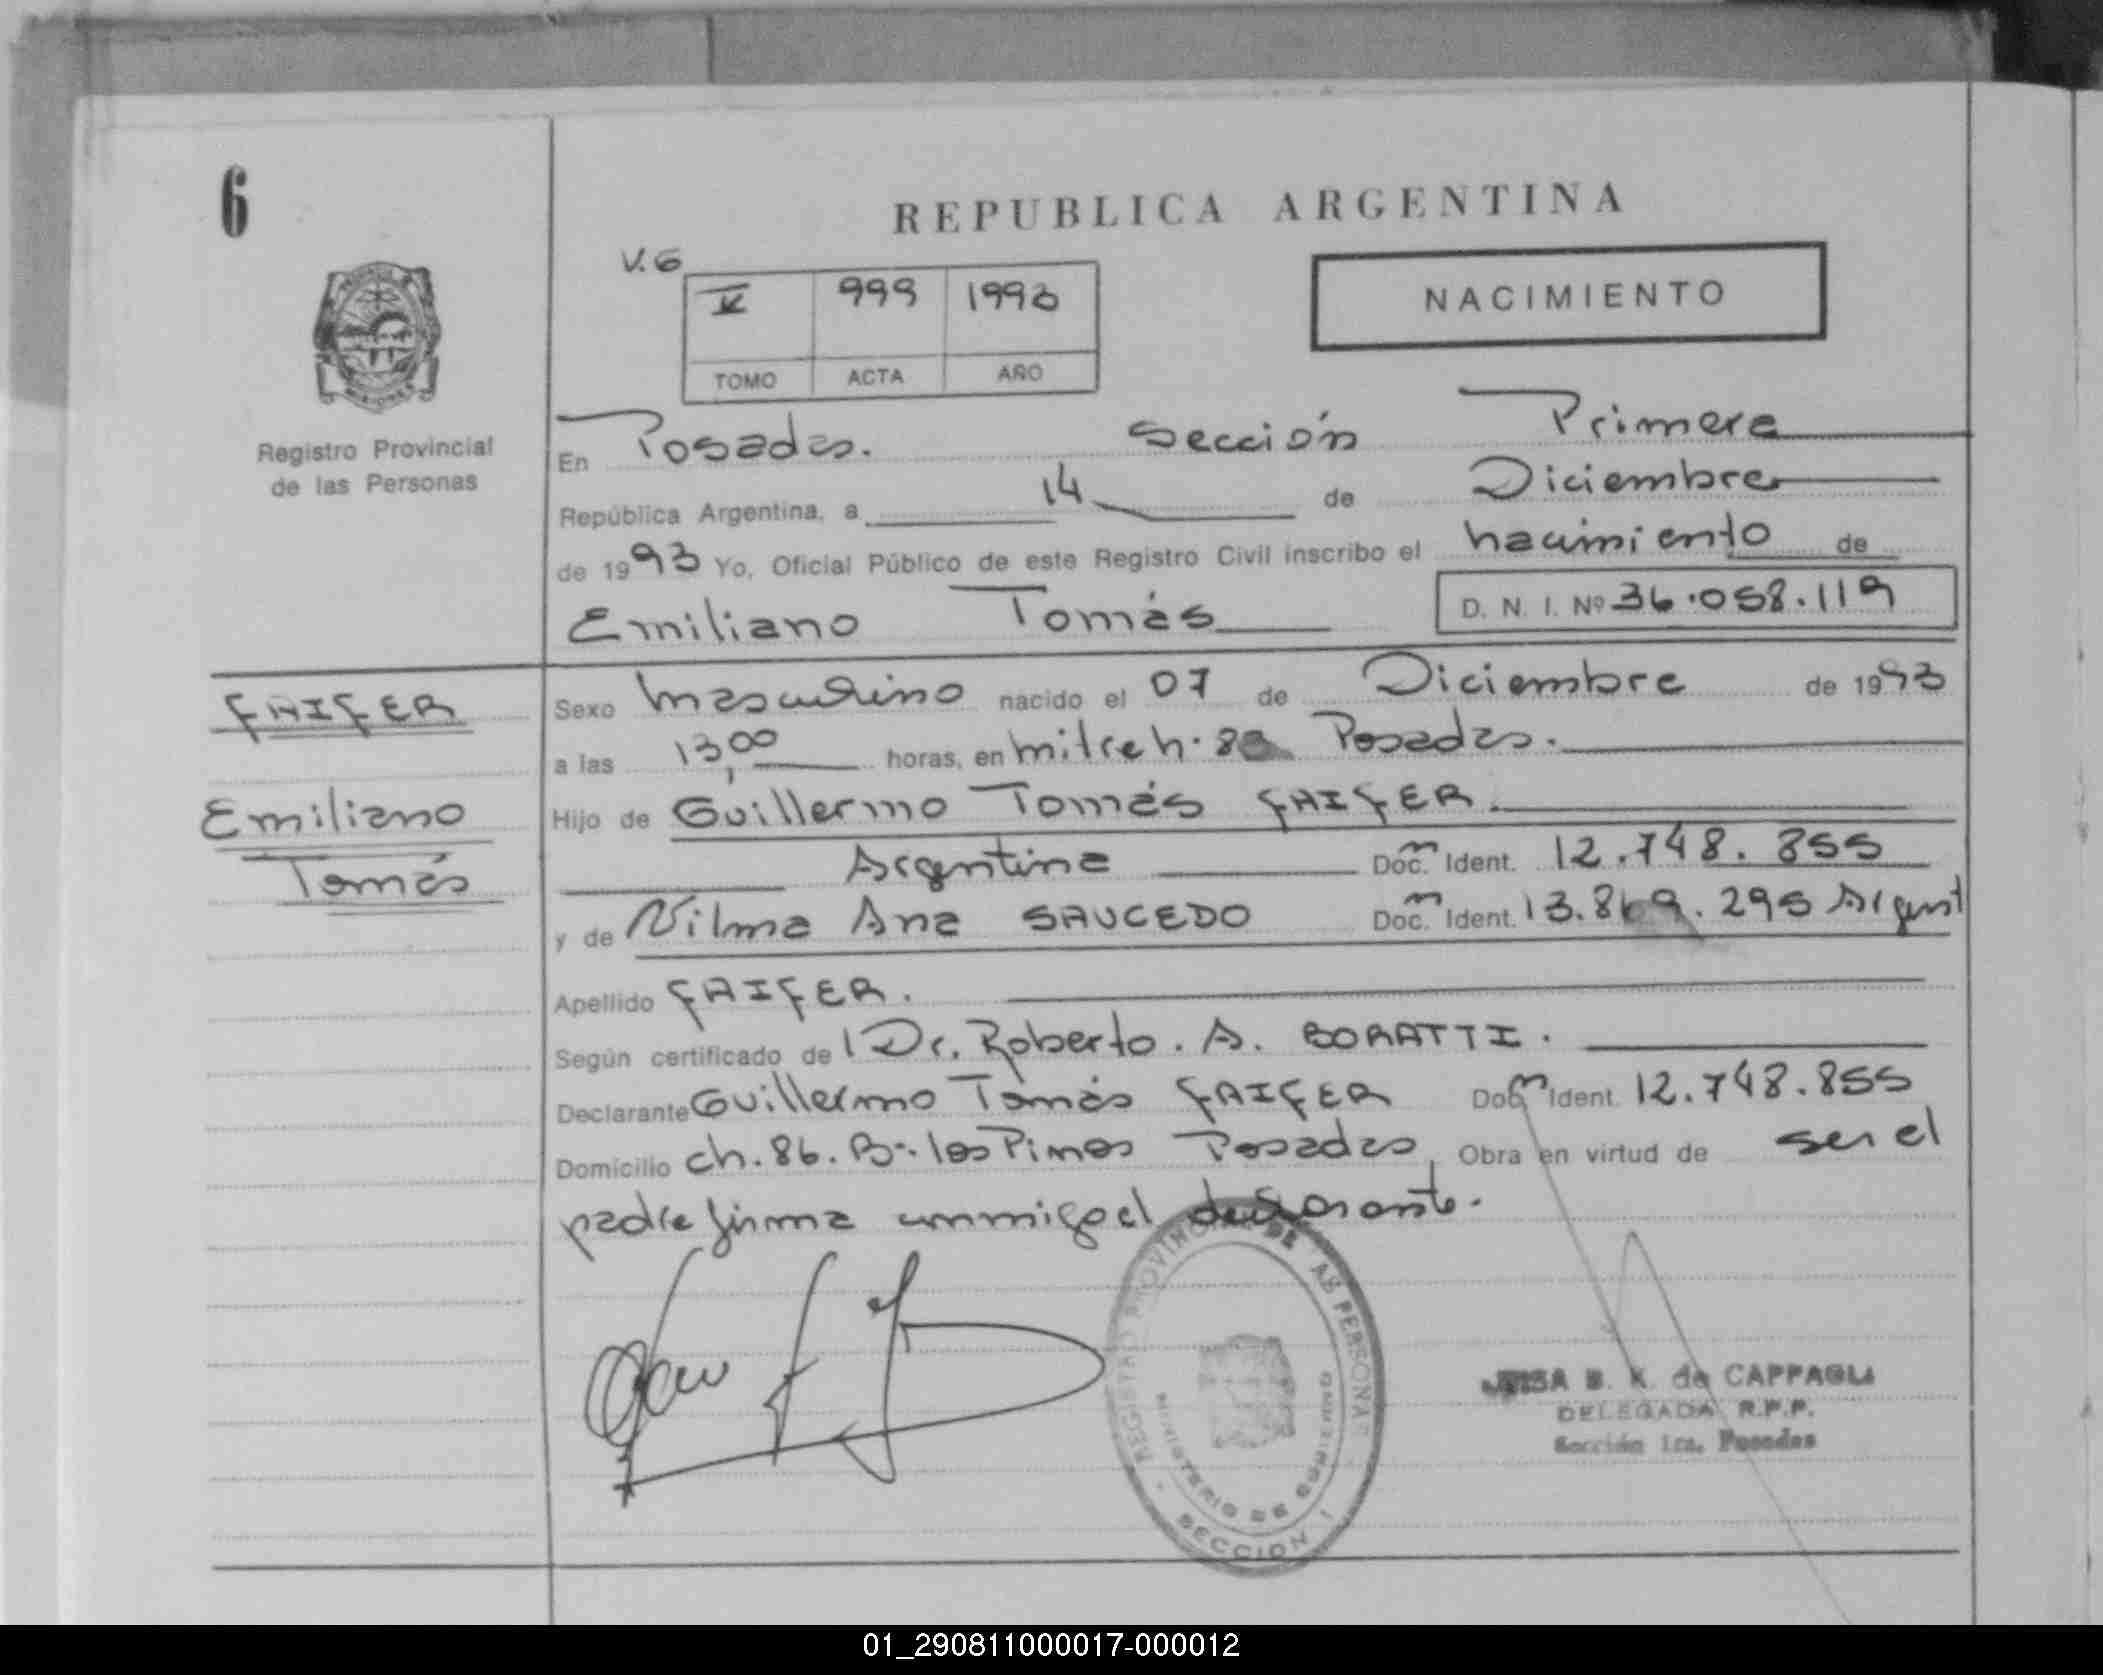 6
REPUBLICA ARGENTINA
V.6
V 999 1993
TOMO ACTA AÑO
NACIMIENTO
Registro Provincial
de las Personas
En Posadas. Sección Primera
República Argentina, a 14 de Diciembre
de 1993 Yo, Oficial Público de este Registro Civil inscribo el nacimiento de
Emiliano Tomás D. N. I. Nº 36.058.119
FAIFER
Emiliano
Tomás
Sexo masculino nacido el 07 de Diciembre de 1993
a las 13,00 horas, en mitre h. Posadas.
Hijo de Guillermo Tomás FAIFER.
Argentina Doc. Ident. 12.748.855
y de Vilma Ana SAUCEDO Doc. Ident. 13.869.295 Argent
Apellido FAIFER.
Según certificado de Dr. Roberto. A. BORATTI.
Declarante Guillermo Tomás FAIFER Doc. Ident. 12.748.855
Domicilio ch. 86. Bº los Pinos Posadas, Obra en virtud de ser el
padre firma conmigo el declarante.
REGISTRO PROVINCIAL DE LAS PERSONAS
MINISTERIO DE GOBIERNO
SECCION I
B. K. de CAPPAGLI
DELEGADA R.P.P.
Sección 1ra. Posadas
01_290811000017-000012